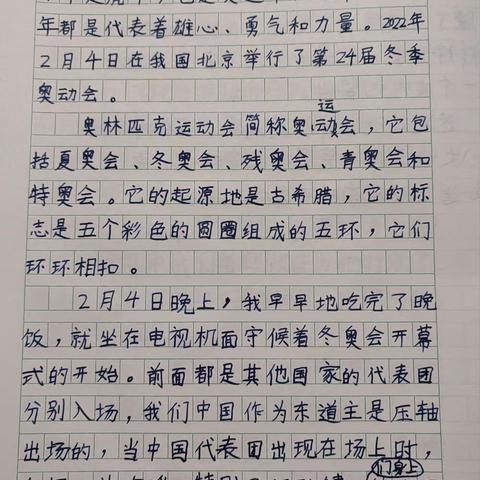 年都是代表着雄心、勇气和力量。2022年
2月4日在我国北京举行了第24届冬季
奥动会。
运
奥林匹克运动会简称奥动会，它包
括夏奥会、冬奥会、残奥会、青奥会和
特奥会。它的起源地是古希腊，它的标
志是五个彩色的圆圈组成的五环，它们
环环相扣。
2月4日晚上，我早早地吃完了晚
饭，就坐在电视机面守候着冬奥会开幕
式的开始。前面都是其他国家的代表团
分别入场，我们中国作为东道主是压轴
出场的，当中国代表团出现在场上时，
们身上